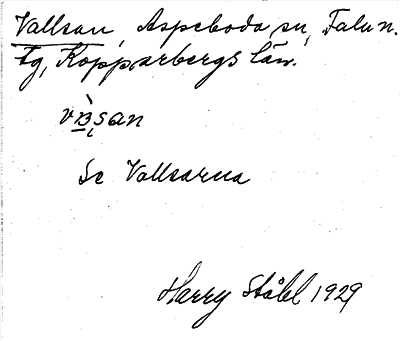 Vallsan, Aspeboda sn, Falu n.
tg, Kopparbergs län.
Se Vallsarna
Harry Ståhl 1929